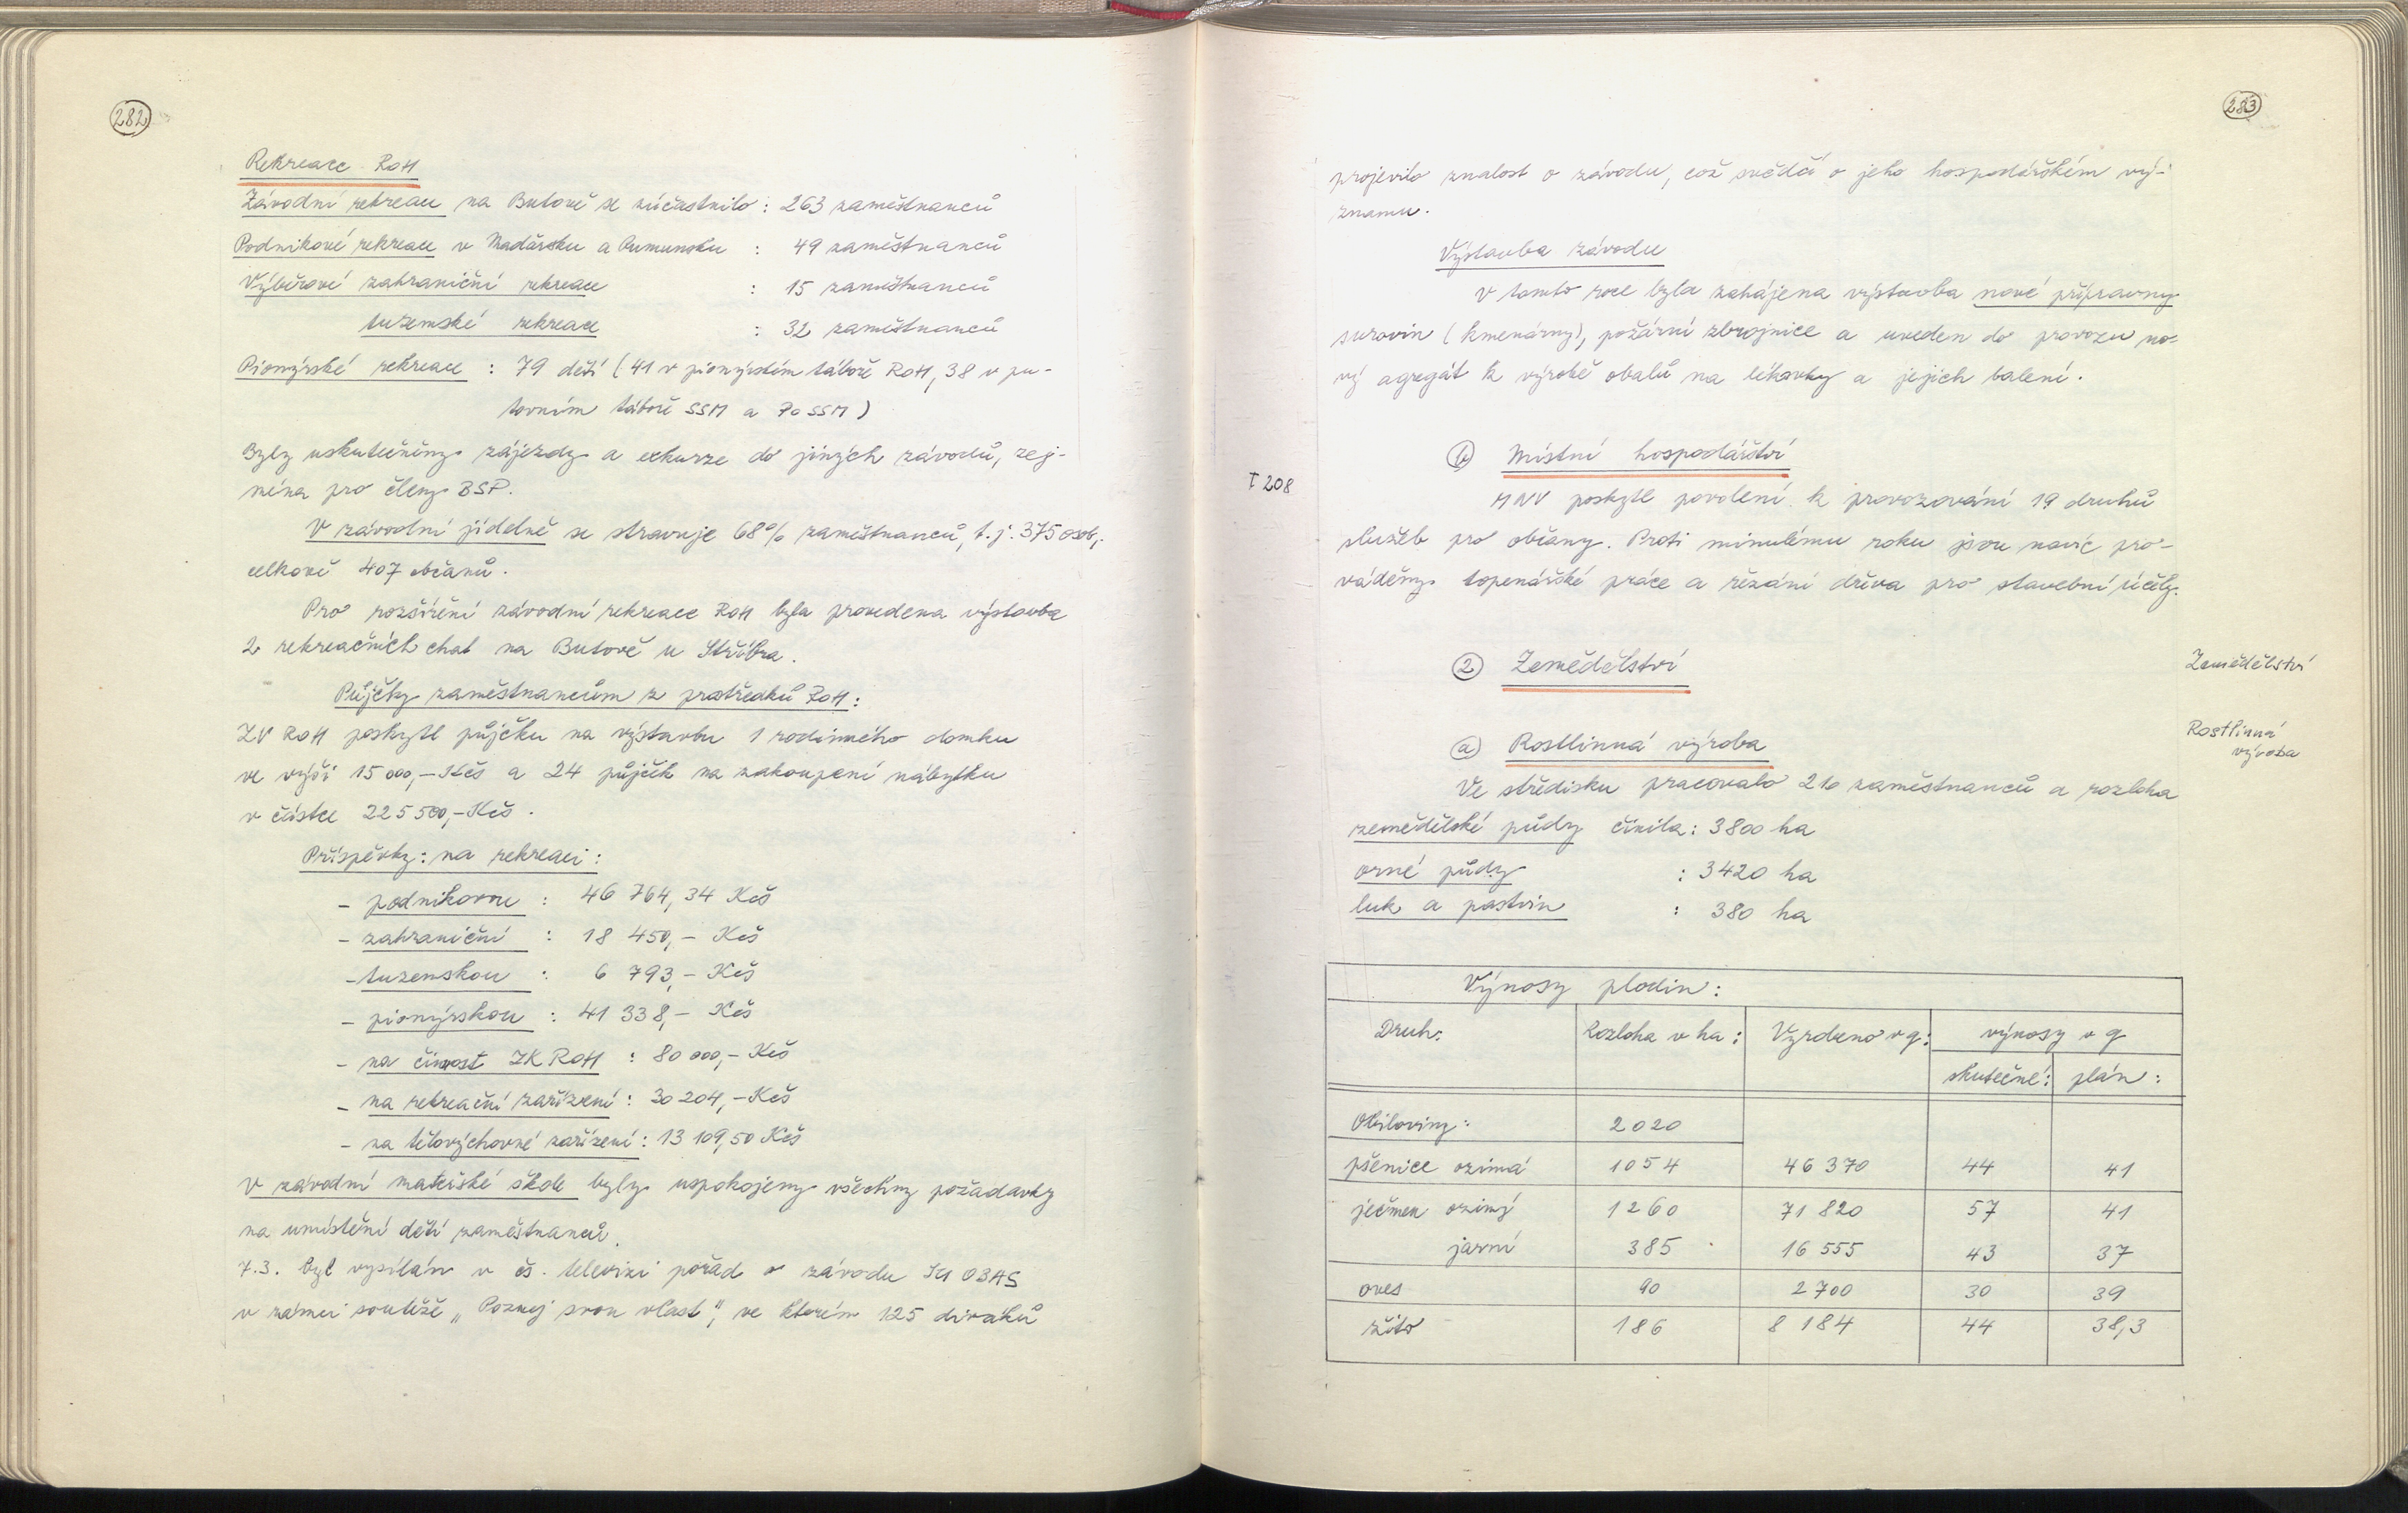 282
Rekreace ROH
Závodní rekreace na Butově se zúčastnilo : 263 zaměstnanců
Podnikové rekreace v Maďarsku a Rumunsku : 49 zaměstnanců
Výběrové zahraniční rekreace : 15 zaměstnanců
tuzemské rekreace : 32 zaměstnanců
Pionýrské rekreace : 79 dětí (41 v pionýrském táboře ROH, 38 v pu-
tovním táboře SSM a PO SSM)
Byly uskutečněny zájezdy a exkurze do jiných závodů, zej-
ména pro členy BSP.
V závodní jídelně se stravuje 68% zaměstnanců, t.j. 375 osob,
celkově 407 občanů.
Pro rozšíření závodní rekreace ROH byla provedena výstavba
2 rekreačních chat na Butově u Stříbra.
Půjčky zaměstnancům z prostředků ROH:
ZV ROH poskytl půjčku na výstavbu 1 rodinného domku
ve výši 15 000,- Kčs a 24 půjček na zakoupení nábytku
v částce 225 500,- Kčs.
Příspěvky: na rekreaci:
- podnikovou : 46 764,34 Kčs
- zahraniční : 18 450,- Kčs
- tuzemskou : 6 793,- Kčs
- pionýrskou : 41 338,- Kčs
- na činnost ZK ROH : 80 000,- Kčs
- na rekreační zařízení : 30 204,- Kčs
- na tělovýchovné zařízení : 13 109,50 Kčs
V závodní mateřské škole byly uspokojeny všechny požadavky
na umístění dětí zaměstnanců.
7.3. byl vysílán v čs. televizi pořad o závodu OBAS
v rámci soutěže „Poznej svou vlast", ve kterém 125 diváků
283
projevilo znalost o závodu, což svědčí o jeho hospodářském vý-
znamu.
Výstavba závodu
V tomto roce byla zahájena výstavba nové přípravny
surovin (kmenárny), požární zbrojnice a uveden do provozu no-
vý agregát k výrobě obalů na lékovky a jejich balení.
b) Místní hospodářství
I 208
MNV poskytl povolení k provozování 19 druhů
služeb pro občany. Proti minulému roku jsou navíc pro-
váděny topenářské práce a řezání dřeva pro stavební účely.
2 Zemědělství
Zemědělství
a) Rostlinná výroba
Rostlinná
výroba
Ve středisku pracovalo 216 zaměstnanců a rozloha
zemědělské půdy činila : 3800 ha
orné půdy : 3420 ha
luk a pastvin : 380 ha
Výnosy plodin :
Druh: Rozloha v ha : Vyrobeno v q: výnosy v q
skutečné: plán :
Obiloviny: 2020
pšenice ozimá 1054 46 370 44 41
ječmen ozimý 1260 71 820 57 41
jarní 385 16 555 43 37
oves 90 2 700 30 39
žito 186 8 184 44 38,3